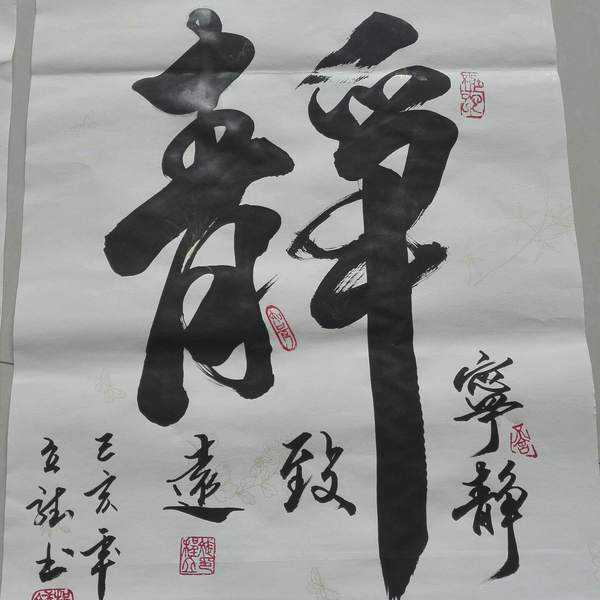 靜
寧靜
致
遠
己亥年
立龍書